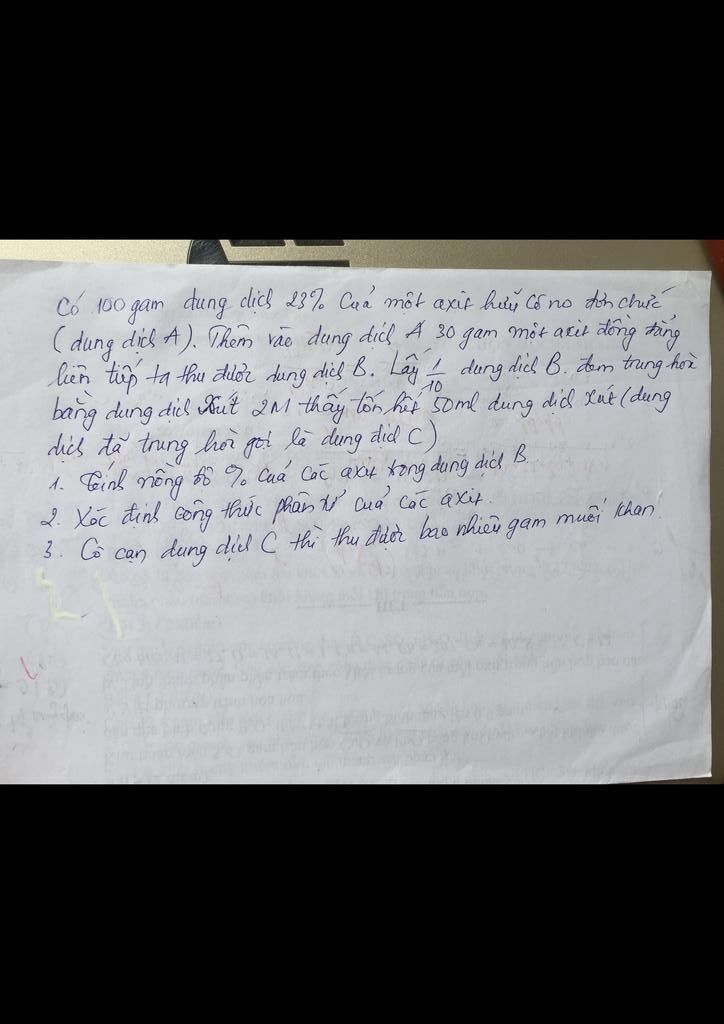 Có 100 gam dung dịch 23% của một axit hữu cơ no đơn chức
(dung dịch A). Thêm vào dung dịch A 30 gam một axit đồng đẳng
liên tiếp ta thu được dung dịch B. Lấy 1/10 dung dịch B. đem trung hoà
bằng dung dịch Xút 2M thấy tốn hết 50ml dung dịch Xút (dung
dịch đã trung hoà gọi là dung dịch C)
1. Tính nồng độ % của các axit trong dung dịch B.
2. Xác định công thức phân tử của các axit.
3. Cô cạn dung dịch C thì thu được bao nhiêu gam muối khan